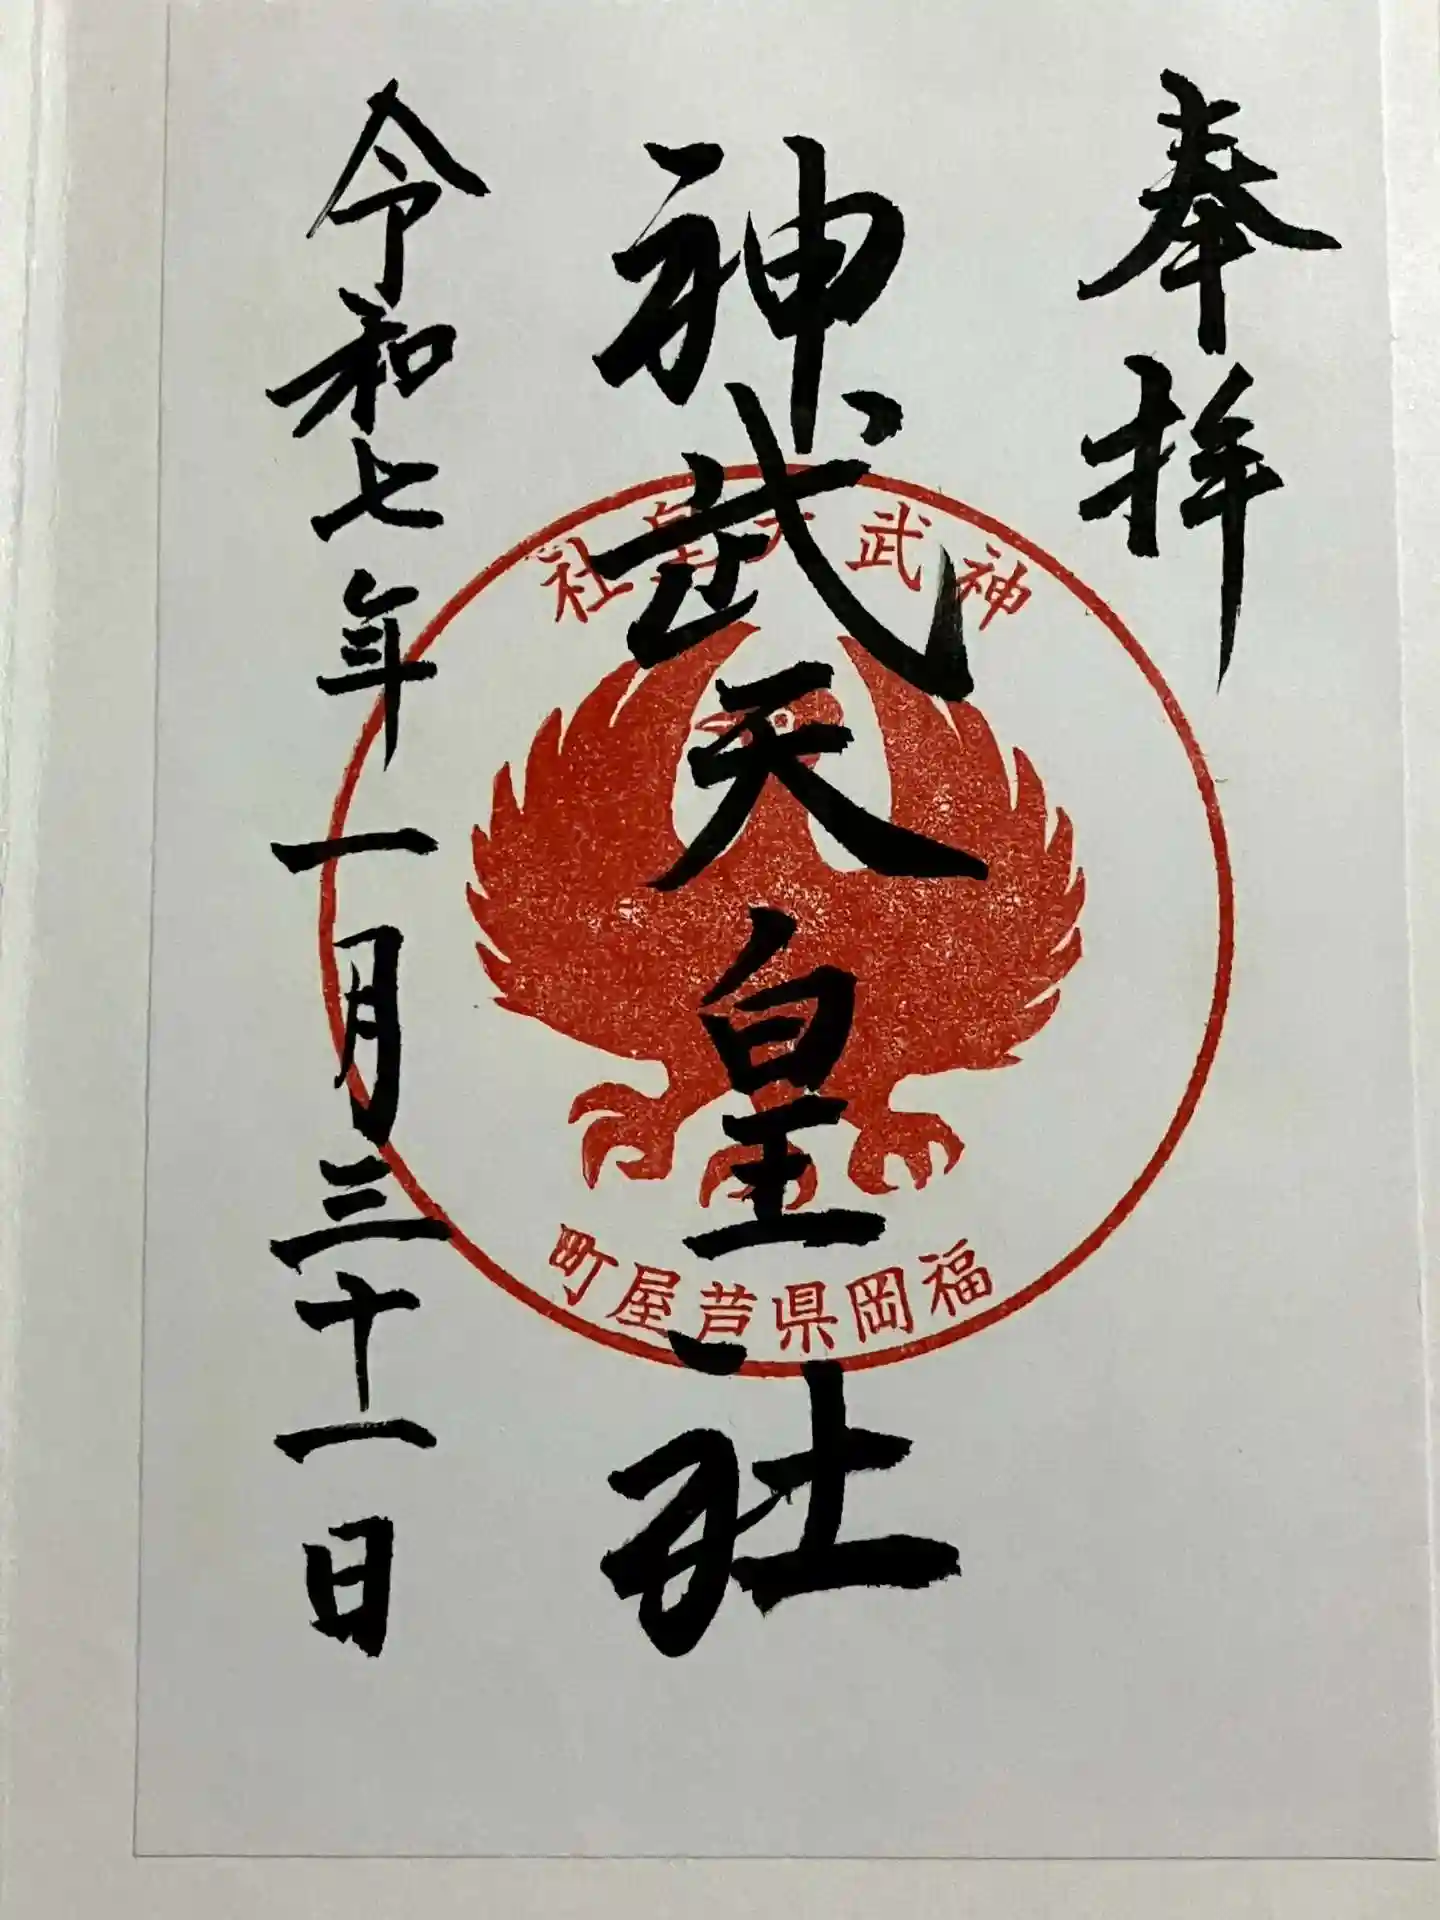 奉拝
神武天皇社
神武天皇社
福岡県芦屋町
令和七年一月三十一日